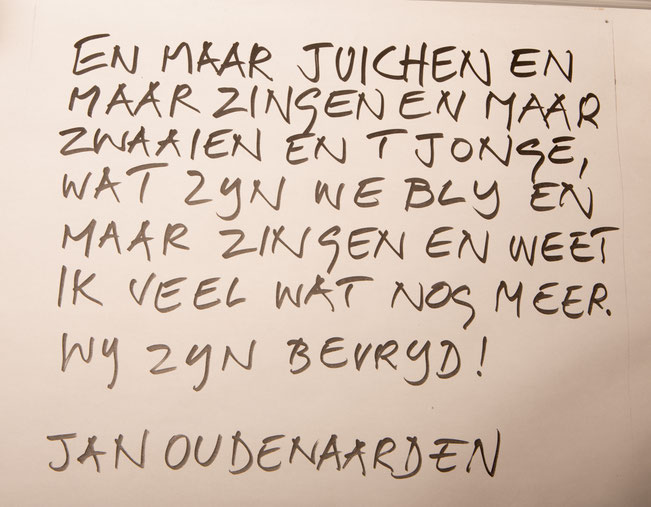 EN MAAR JUICHEN EN
MAAR ZINGEN EN MAAR
ZWAAIEN EN TJONGE,
WAT ZYN WE BLY EN
MAAR ZINGEN EN WEET
IK VEEL WAT NOG MEER.
WY ZYN BEVRYD!
JAN OUDENAARDEN